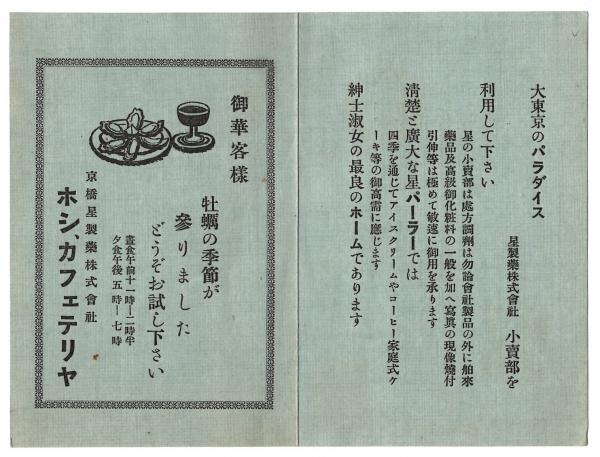 大東京のパラダイス
星製藥株式會社 小賣部を
利用して下さい
星の小賣部は處方調劑は勿論會社製品の外に舶來
藥品及高級御化粧料の一般を加へ寫眞の現像燒付
引伸等は極めて敏速に御用を承ります
清楚と廣大な星パーラーでは
四季を通じてアイスクリームやコーヒー家庭式ケ
ーキ等の御高需に應じます
紳士淑女の最良のホームであります
御華客樣
牡蠣の季節が
參りました
どうぞお試し下さい
晝食午前十一時—二時半
夕食午後五時—七時
京橋星製藥株式會社
ホシ、カフェテリヤ